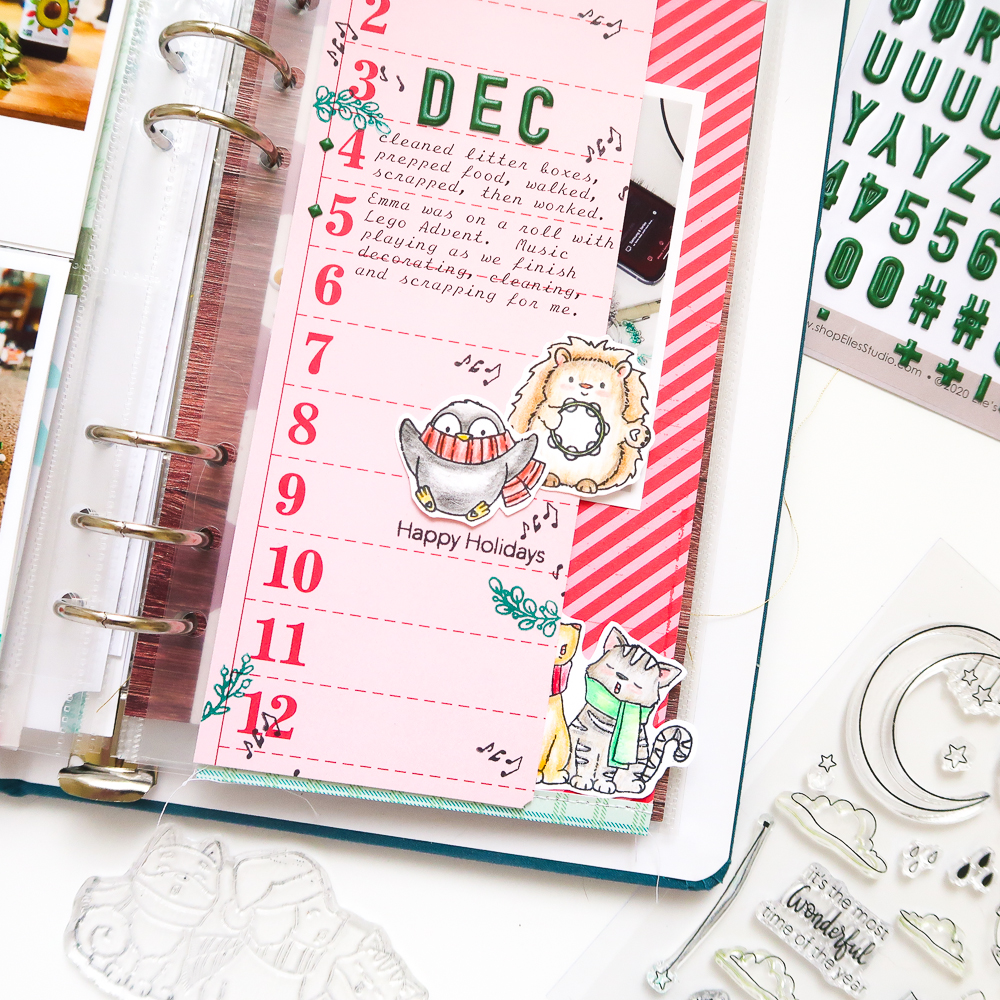 2
3
DEC
4
cleaned litter boxes,
prepped food, walked,
scrapped, then worked.
5
Emma was on a roll with
Lego Advent. Music
playing as we finish
decorating, cleaning,
and scrapping for me.
6
7
8
9
Happy Holidays
10
11
12
QR
UUUU
YYYZ
44556
00##
++
w.shopEllesStudio.com • ©2020 Elle's
it's the most
Wonderful
time of the year